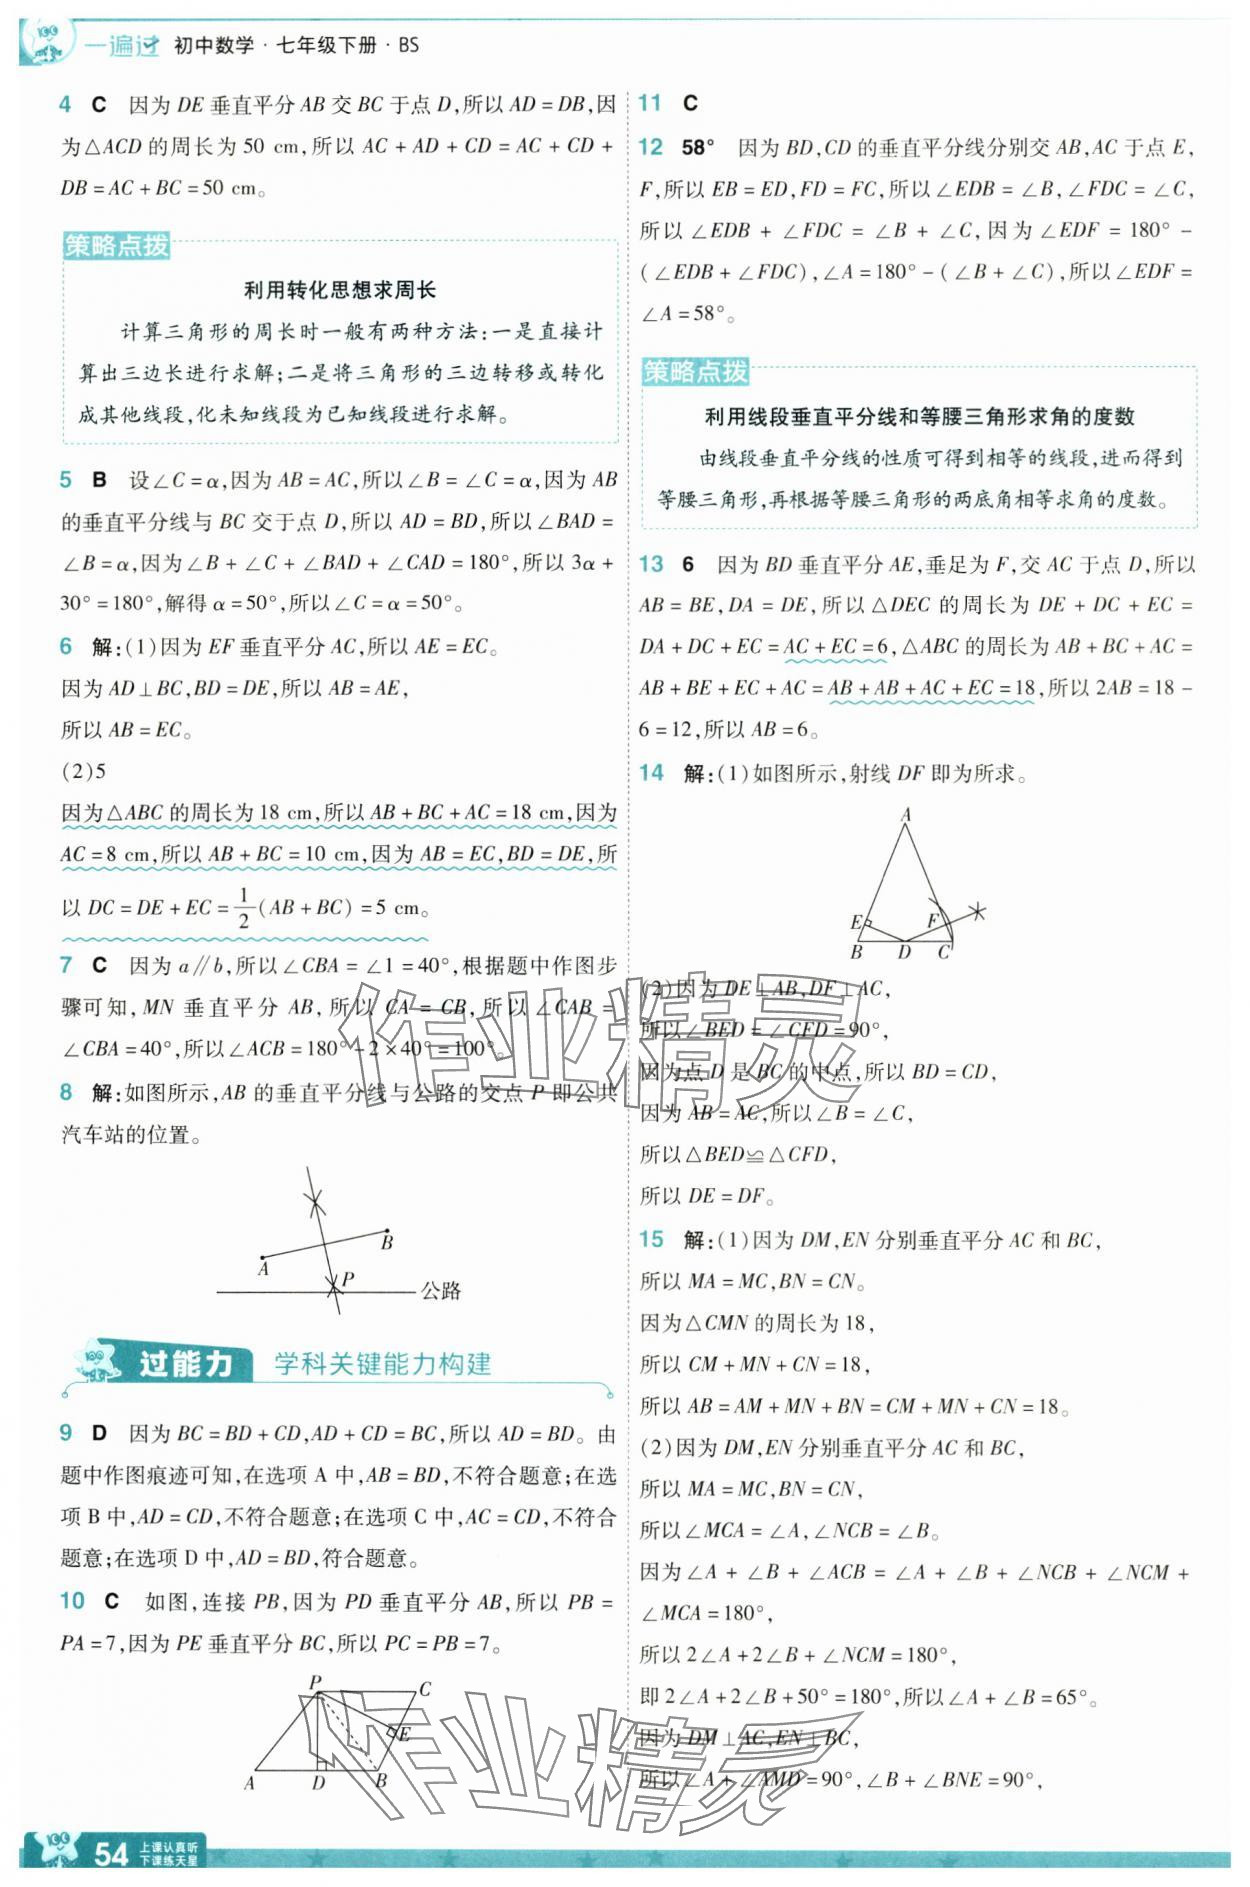 一遍过 初中数学·七年级下册·BS
4 C 因为 DE 垂直平分 AB 交 BC 于点 D,所以 AD = DB,因
为△ACD 的周长为 50 cm,所以 AC + AD + CD = AC + CD +
DB = AC + BC = 50 cm。
策略点拨
利用转化思想求周长
计算三角形的周长时一般有两种方法:一是直接计
算出三边长进行求解;二是将三角形的三边转移或转化
成其他线段,化未知线段为已知线段进行求解。
5 B 设∠C = α,因为 AB = AC,所以∠B = ∠C = α,因为 AB
的垂直平分线与 BC 交于点 D,所以 AD = BD,所以∠BAD =
∠B = α,因为∠B + ∠C + ∠BAD + ∠CAD = 180°,所以 3α +
30° = 180°,解得 α = 50°,所以∠C = α = 50°。
6 解:(1)因为 EF 垂直平分 AC,所以 AE = EC。
因为 AD⊥BC,BD = DE,所以 AB = AE,
所以 AB = EC。
(2)5
因为△ABC 的周长为 18 cm,所以 AB + BC + AC = 18 cm,因为
AC = 8 cm,所以 AB + BC = 10 cm,因为 AB = EC,BD = DE,所
以 DC = DE + EC = 1/2(AB + BC) = 5 cm。
7 C 因为 a∥b,所以∠CBA = ∠1 = 40°,根据题中作图步
骤可知,MN 垂直平分 AB,所以 CA = CB,所以∠CAB =
∠CBA = 40°,所以∠ACB = 180° - 2 × 40° = 100°。
8 解:如图所示,AB 的垂直平分线与公路的交点 P 即公共
汽车站的位置。
A
B
P
公路
过能力 学科关键能力构建
9 D 因为 BC = BD + CD,AD + CD = BC,所以 AD = BD。由
题中作图痕迹可知,在选项 A 中,AB = BD,不符合题意;在选
项 B 中,AD = CD,不符合题意;在选项 C 中,AC = CD,不符合
题意;在选项 D 中,AD = BD,符合题意。
10 C 如图,连接 PB,因为 PD 垂直平分 AB,所以 PB =
PA = 7,因为 PE 垂直平分 BC,所以 PC = PB = 7。
P C
E
A D B
54 上课认真听
下课练天星
11 C
12 58° 因为 BD,CD 的垂直平分线分别交 AB,AC 于点 E,
F,所以 EB = ED,FD = FC,所以∠EDB = ∠B,∠FDC = ∠C,
所以∠EDB + ∠FDC = ∠B + ∠C,因为∠EDF = 180° -
(∠EDB + ∠FDC),∠A = 180° - (∠B + ∠C),所以∠EDF =
∠A = 58°。
策略点拨
利用线段垂直平分线和等腰三角形求角的度数
由线段垂直平分线的性质可得到相等的线段,进而得到
等腰三角形,再根据等腰三角形的两底角相等求角的度数。
13 6 因为 BD 垂直平分 AE,垂足为 F,交 AC 于点 D,所以
AB = BE,DA = DE,所以△DEC 的周长为 DE + DC + EC =
DA + DC + EC = AC + EC = 6,△ABC 的周长为 AB + BC + AC =
AB + BE + EC + AC = AB + AB + AC + EC = 18,所以 2AB = 18 -
6 = 12,所以 AB = 6。
14 解:(1)如图所示,射线 DF 即为所求。
A
E F
B D C
(2)因为 DE⊥AB,DF⊥AC,
所以∠BED = ∠CFD = 90°,
因为点 D 是 BC 的中点,所以 BD = CD,
因为 AB = AC,所以∠B = ∠C,
所以△BED≌△CFD,
所以 DE = DF。
15 解:(1)因为 DM,EN 分别垂直平分 AC 和 BC,
所以 MA = MC,BN = CN。
因为△CMN 的周长为 18,
所以 CM + MN + CN = 18,
所以 AB = AM + MN + BN = CM + MN + CN = 18。
(2)因为 DM,EN 分别垂直平分 AC 和 BC,
所以 MA = MC,BN = CN,
所以∠MCA = ∠A,∠NCB = ∠B。
因为∠A + ∠B + ∠ACB = ∠A + ∠B + ∠NCB + ∠NCM +
∠MCA = 180°,
所以 2∠A + 2∠B + ∠NCM = 180°,
即 2∠A + 2∠B + 50° = 180°,所以∠A + ∠B = 65°。
因为 DM⊥AC,EN⊥BC,
所以∠A + ∠AMD = 90°,∠B + ∠BNE = 90°,
作业精灵
作业精灵